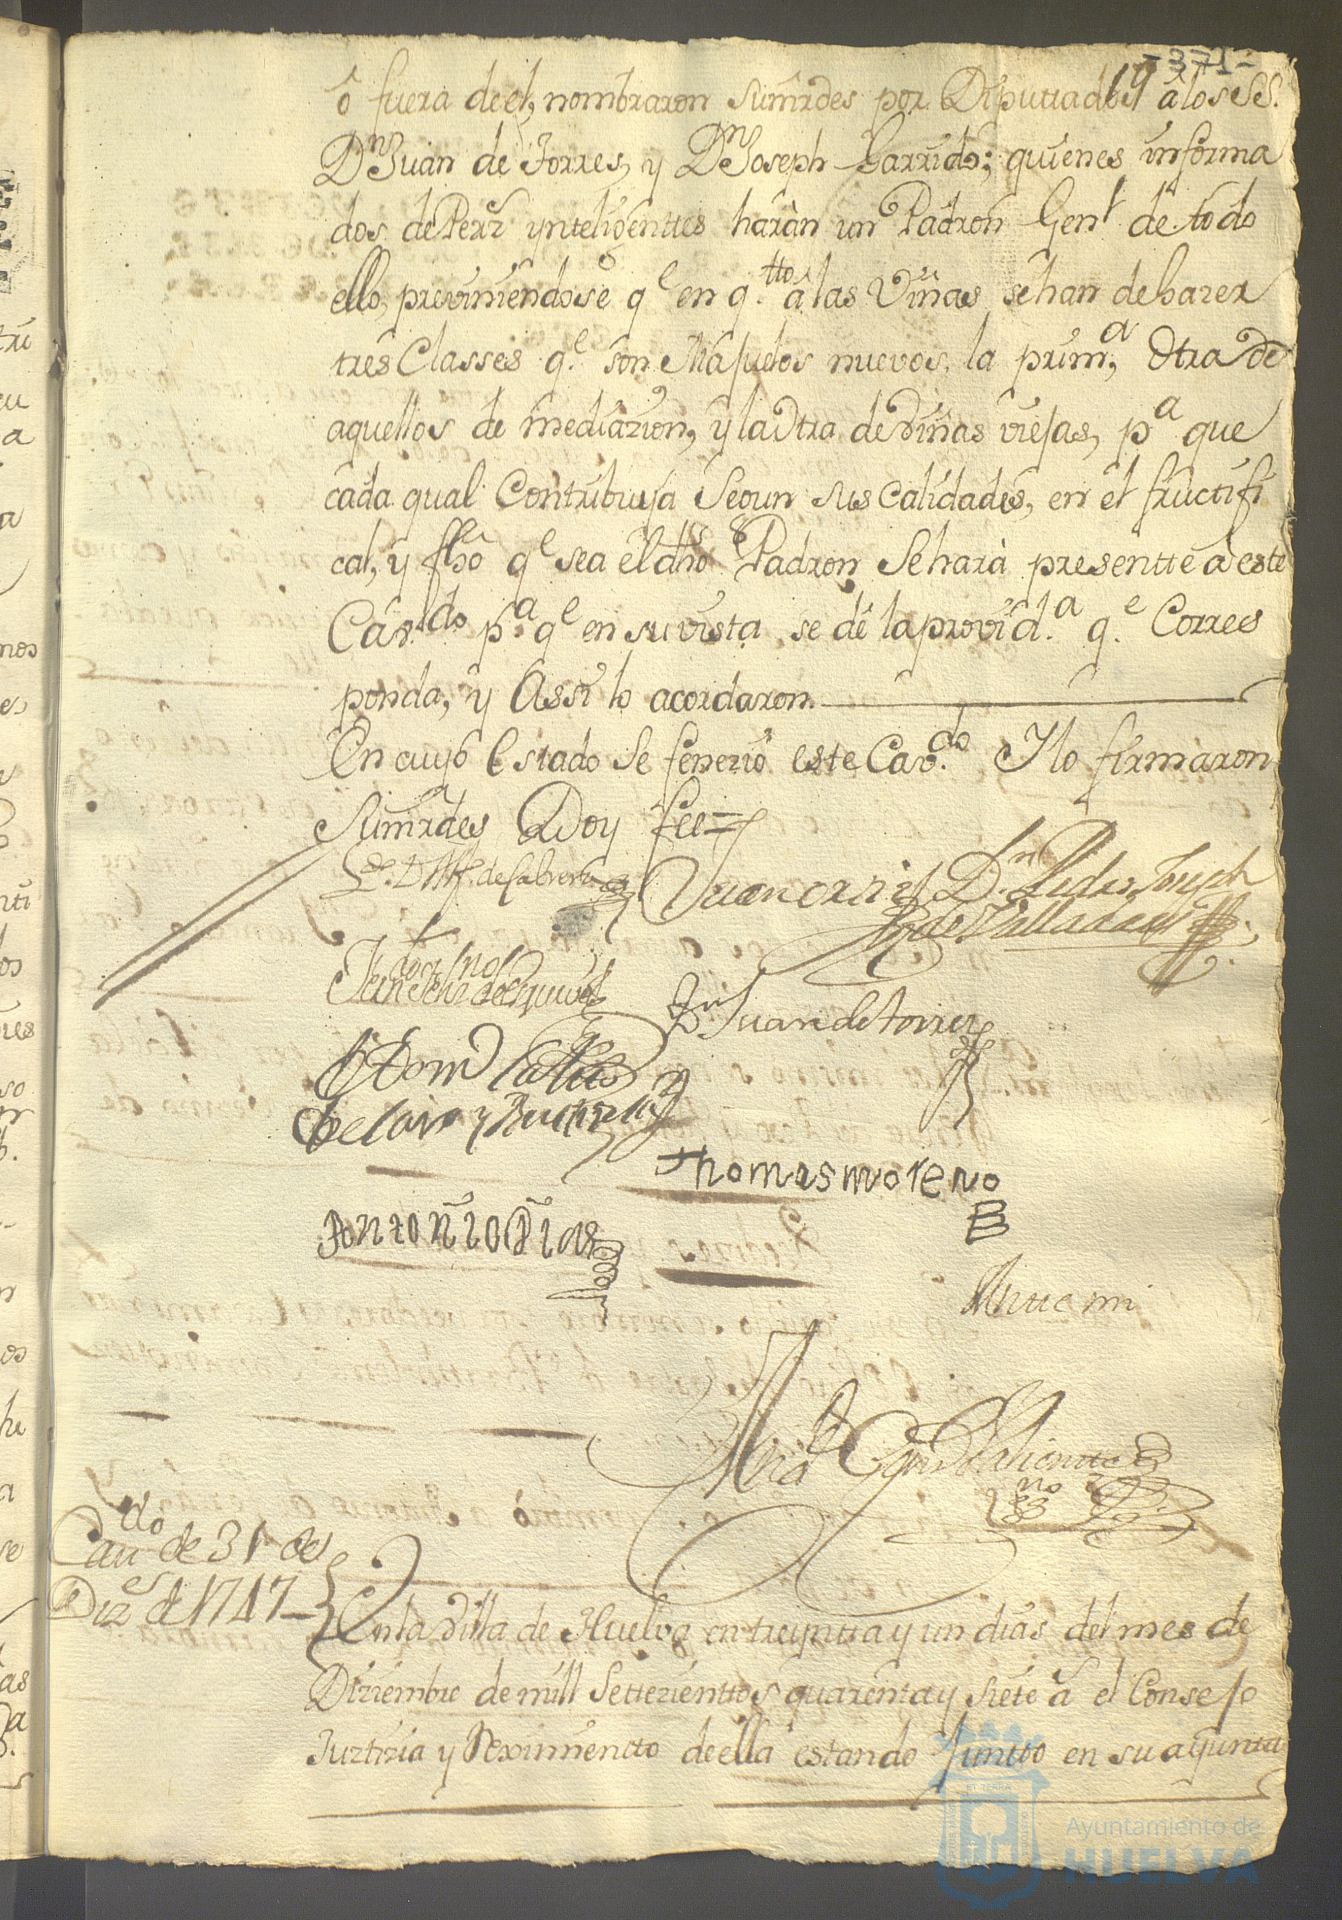 -371-
19
ô fuera de el, nombraron Sumrdes por Diputtados â los SS.
Dn. Juan de Torres, y Dn. Joseph Garrido; quienes informa
dos de Pers. ynteligenttes haràn un Padron Genl. de todo
ello, previniendose qe. en qtto. â las Viñas se han de hazer
tres Classes qe. son Majuelos nuevos, la prima, Otra de
aquellos de mediazion, y la Otra de Viñas viejas, pa. que
cada qual Contribuya Segun sus Calidades, en el fructifi
cal, y fho qe. sea el dho Padron Se harà presentte a este
Cavldo. pa. qe. en su vista se dé la provida. qe. Corres
ponda, y Assi lo acordaron.
En cuyo Estado Se fenezio este Cavdo. Y lo firmaron
Sumrdes Doy fee=
Dn. Pedro Joseph
de Valladares
Dn. Juan de torres
thomas moreno
Antonio Dias
Antte mi
Cavdo. de 31 de
Dize. de 1747
En la Villa de Huelva en treyntta y un dias del mes de
Diziembre de mill Settezienttos quarenta y siete a. el Consejo
Justizia y Reximientto de ella estando Juntto en su ayuntta
Ayuntamiento de
HUELVA